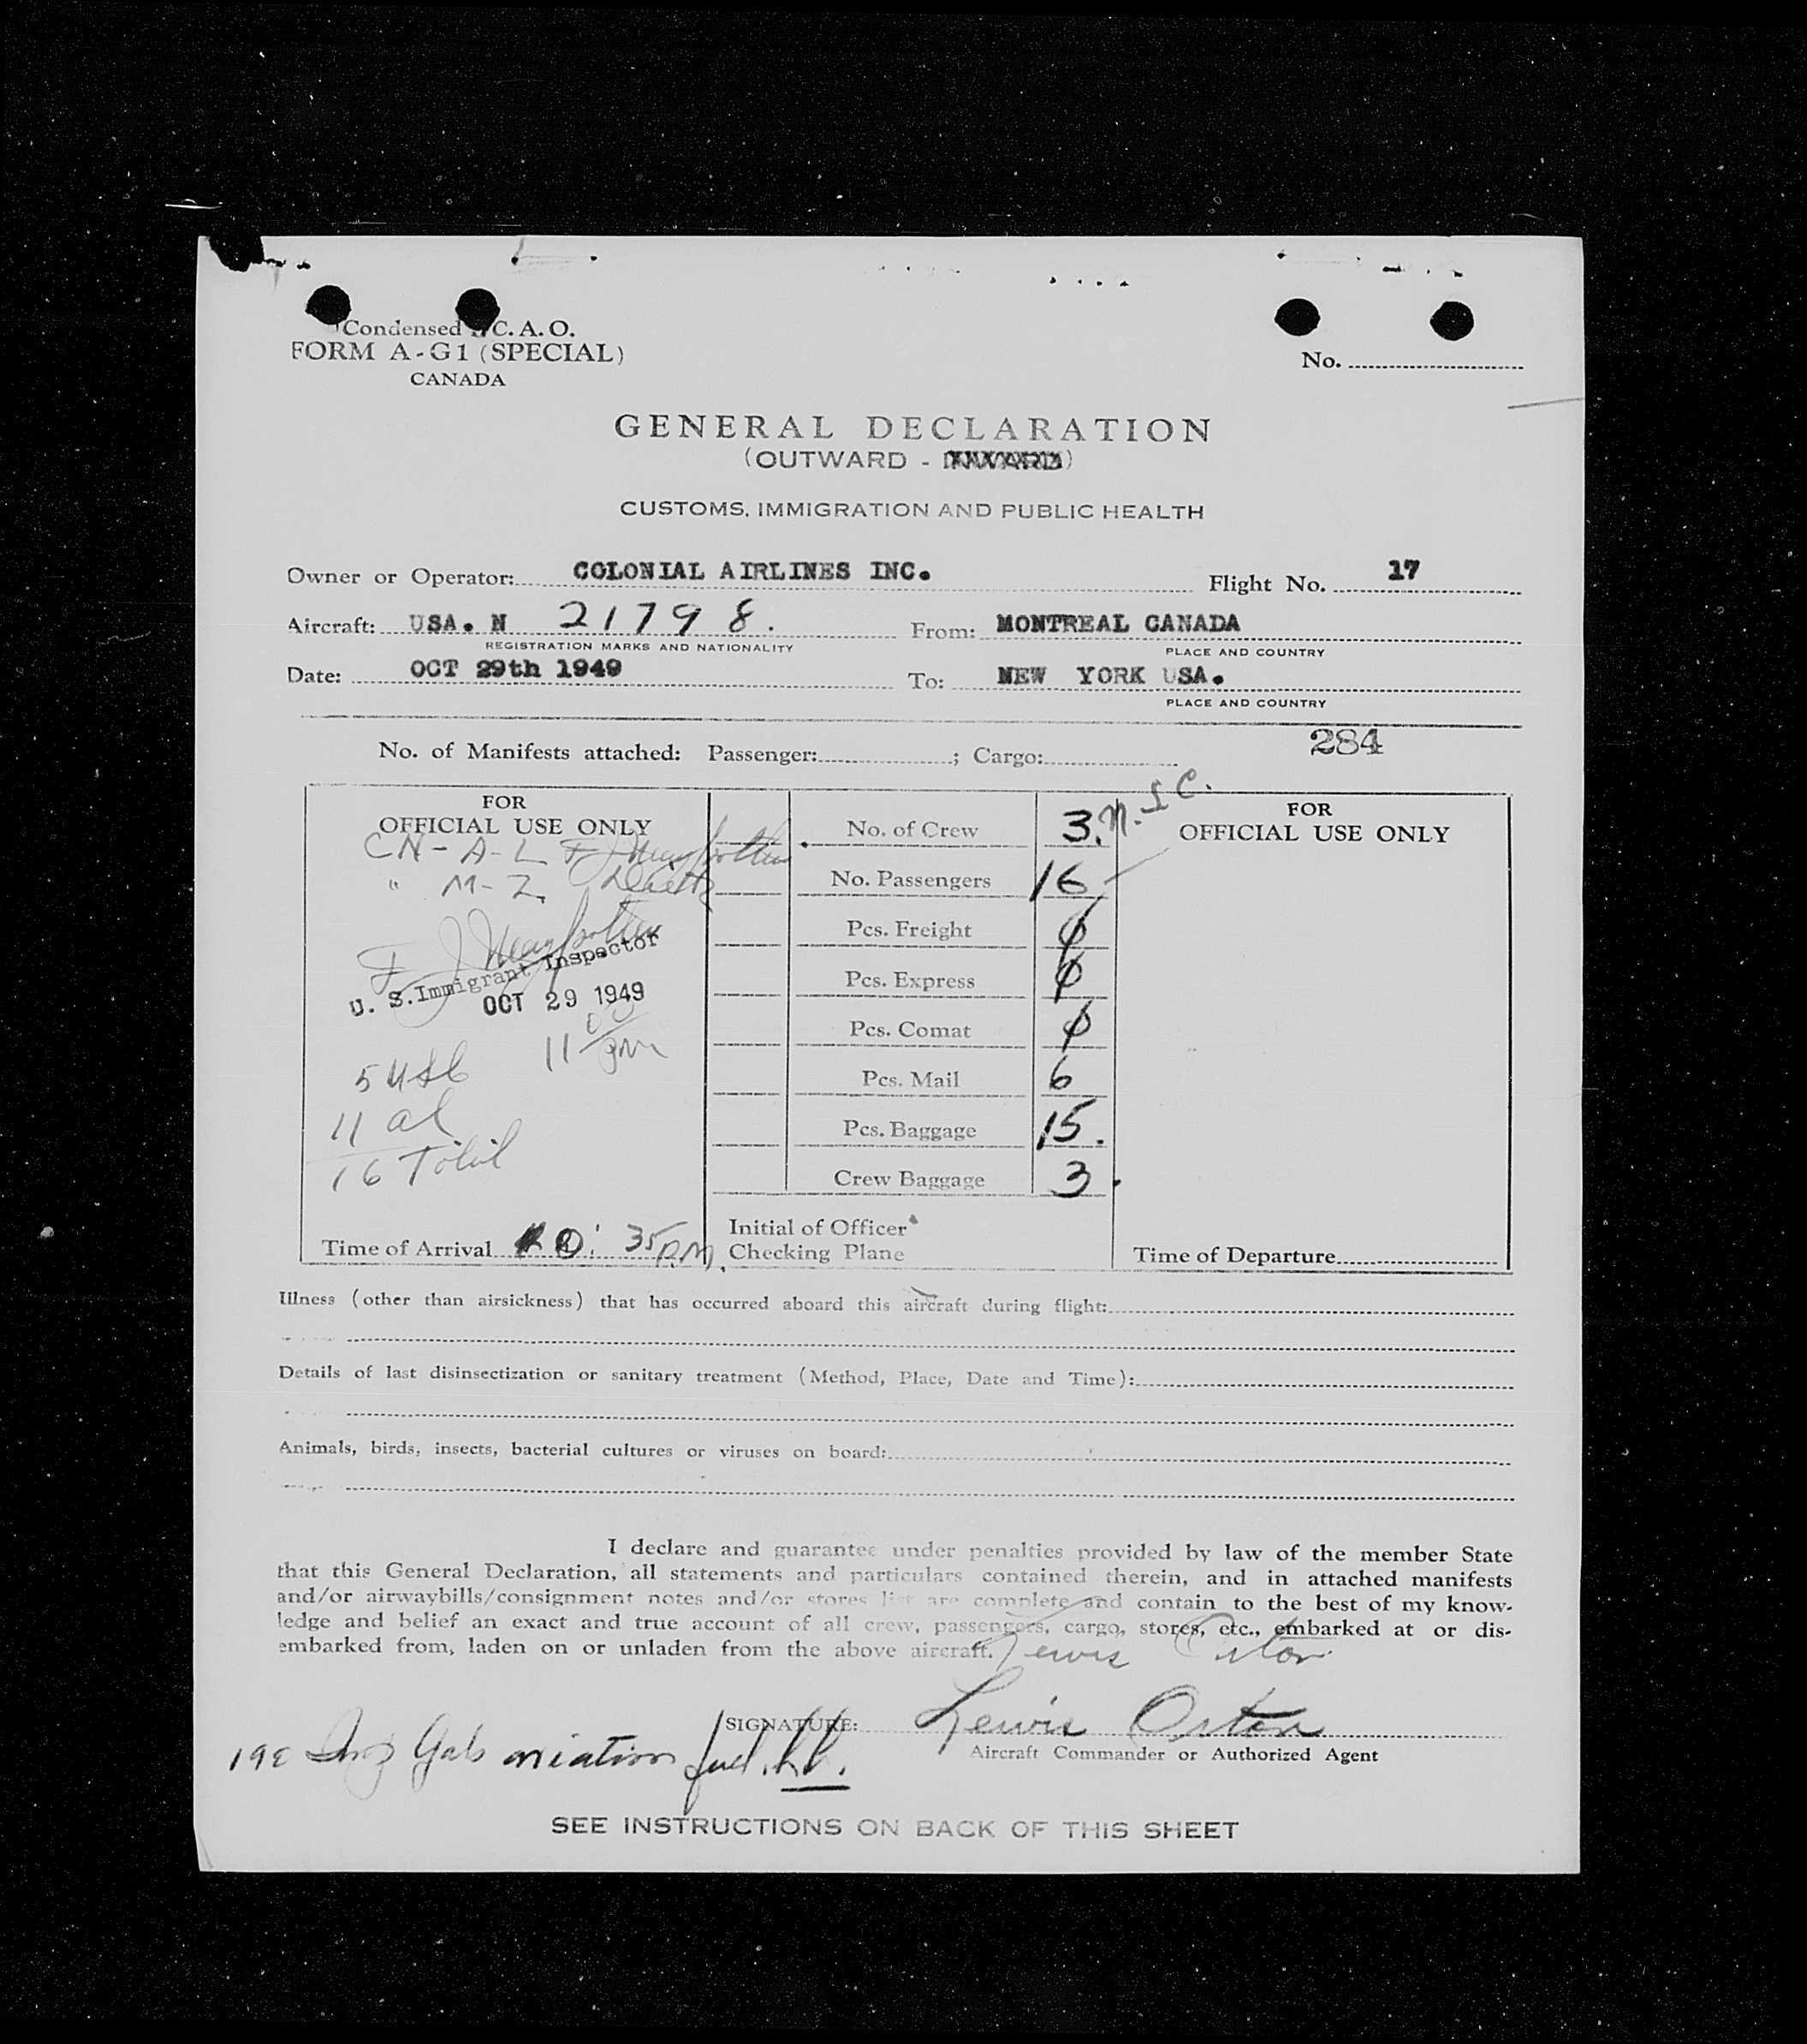 Condensed I.C.A.O.
FORM A-G1 (SPECIAL)
CANADA
No.
GENERAL DECLARATION
(OUTWARD - INWARD)
CUSTOMS, IMMIGRATION AND PUBLIC HEALTH
Owner or Operator: COLONIAL AIRLINES INC. Flight No. 17
Aircraft: USA. N 21798. From: MONTREAL CANADA
REGISTRATION MARKS AND NATIONALITY PLACE AND COUNTRY
Date: OCT 29th 1949 To: NEW YORK USA.
PLACE AND COUNTRY
284
No. of Manifests attached: Passenger: ; Cargo:
FOR
OFFICIAL USE ONLY
CN - A-L F J
" M-Z
F J
U. S. Immigrant Inspector
OCT 29 1949
11 00 pm
5 USC
11 al
16 Total
Time of Arrival 10:35 P.M.
No. of Crew 3. N.I.C.
No. Passengers 16
Pcs. Freight 0
Pcs. Express 0
Pcs. Comat 0
Pcs. Mail 6
Pcs. Baggage 15.
Crew Baggage 3.
Initial of Officer
Checking Plane
FOR
OFFICIAL USE ONLY
Time of Departure
Illness (other than airsickness) that has occurred aboard this aircraft during flight:
Details of last disinsectization or sanitary treatment (Method, Place, Date and Time):
Animals, birds, insects, bacterial cultures or viruses on board:
I declare and guarantee under penalties provided by law of the member State
that this General Declaration, all statements and particulars contained therein, and in attached manifests
and/or airwaybills/consignment notes and/or stores list are complete and contain to the best of my know-
ledge and belief an exact and true account of all crew, passengers, cargo, stores, etc., embarked at or dis-
embarked from, laden on or unladen from the above aircraft. Lewis Orton
SIGNATURE: Lewis Orton
Aircraft Commander or Authorized Agent
Gals aviation fuel.
SEE INSTRUCTIONS ON BACK OF THIS SHEET